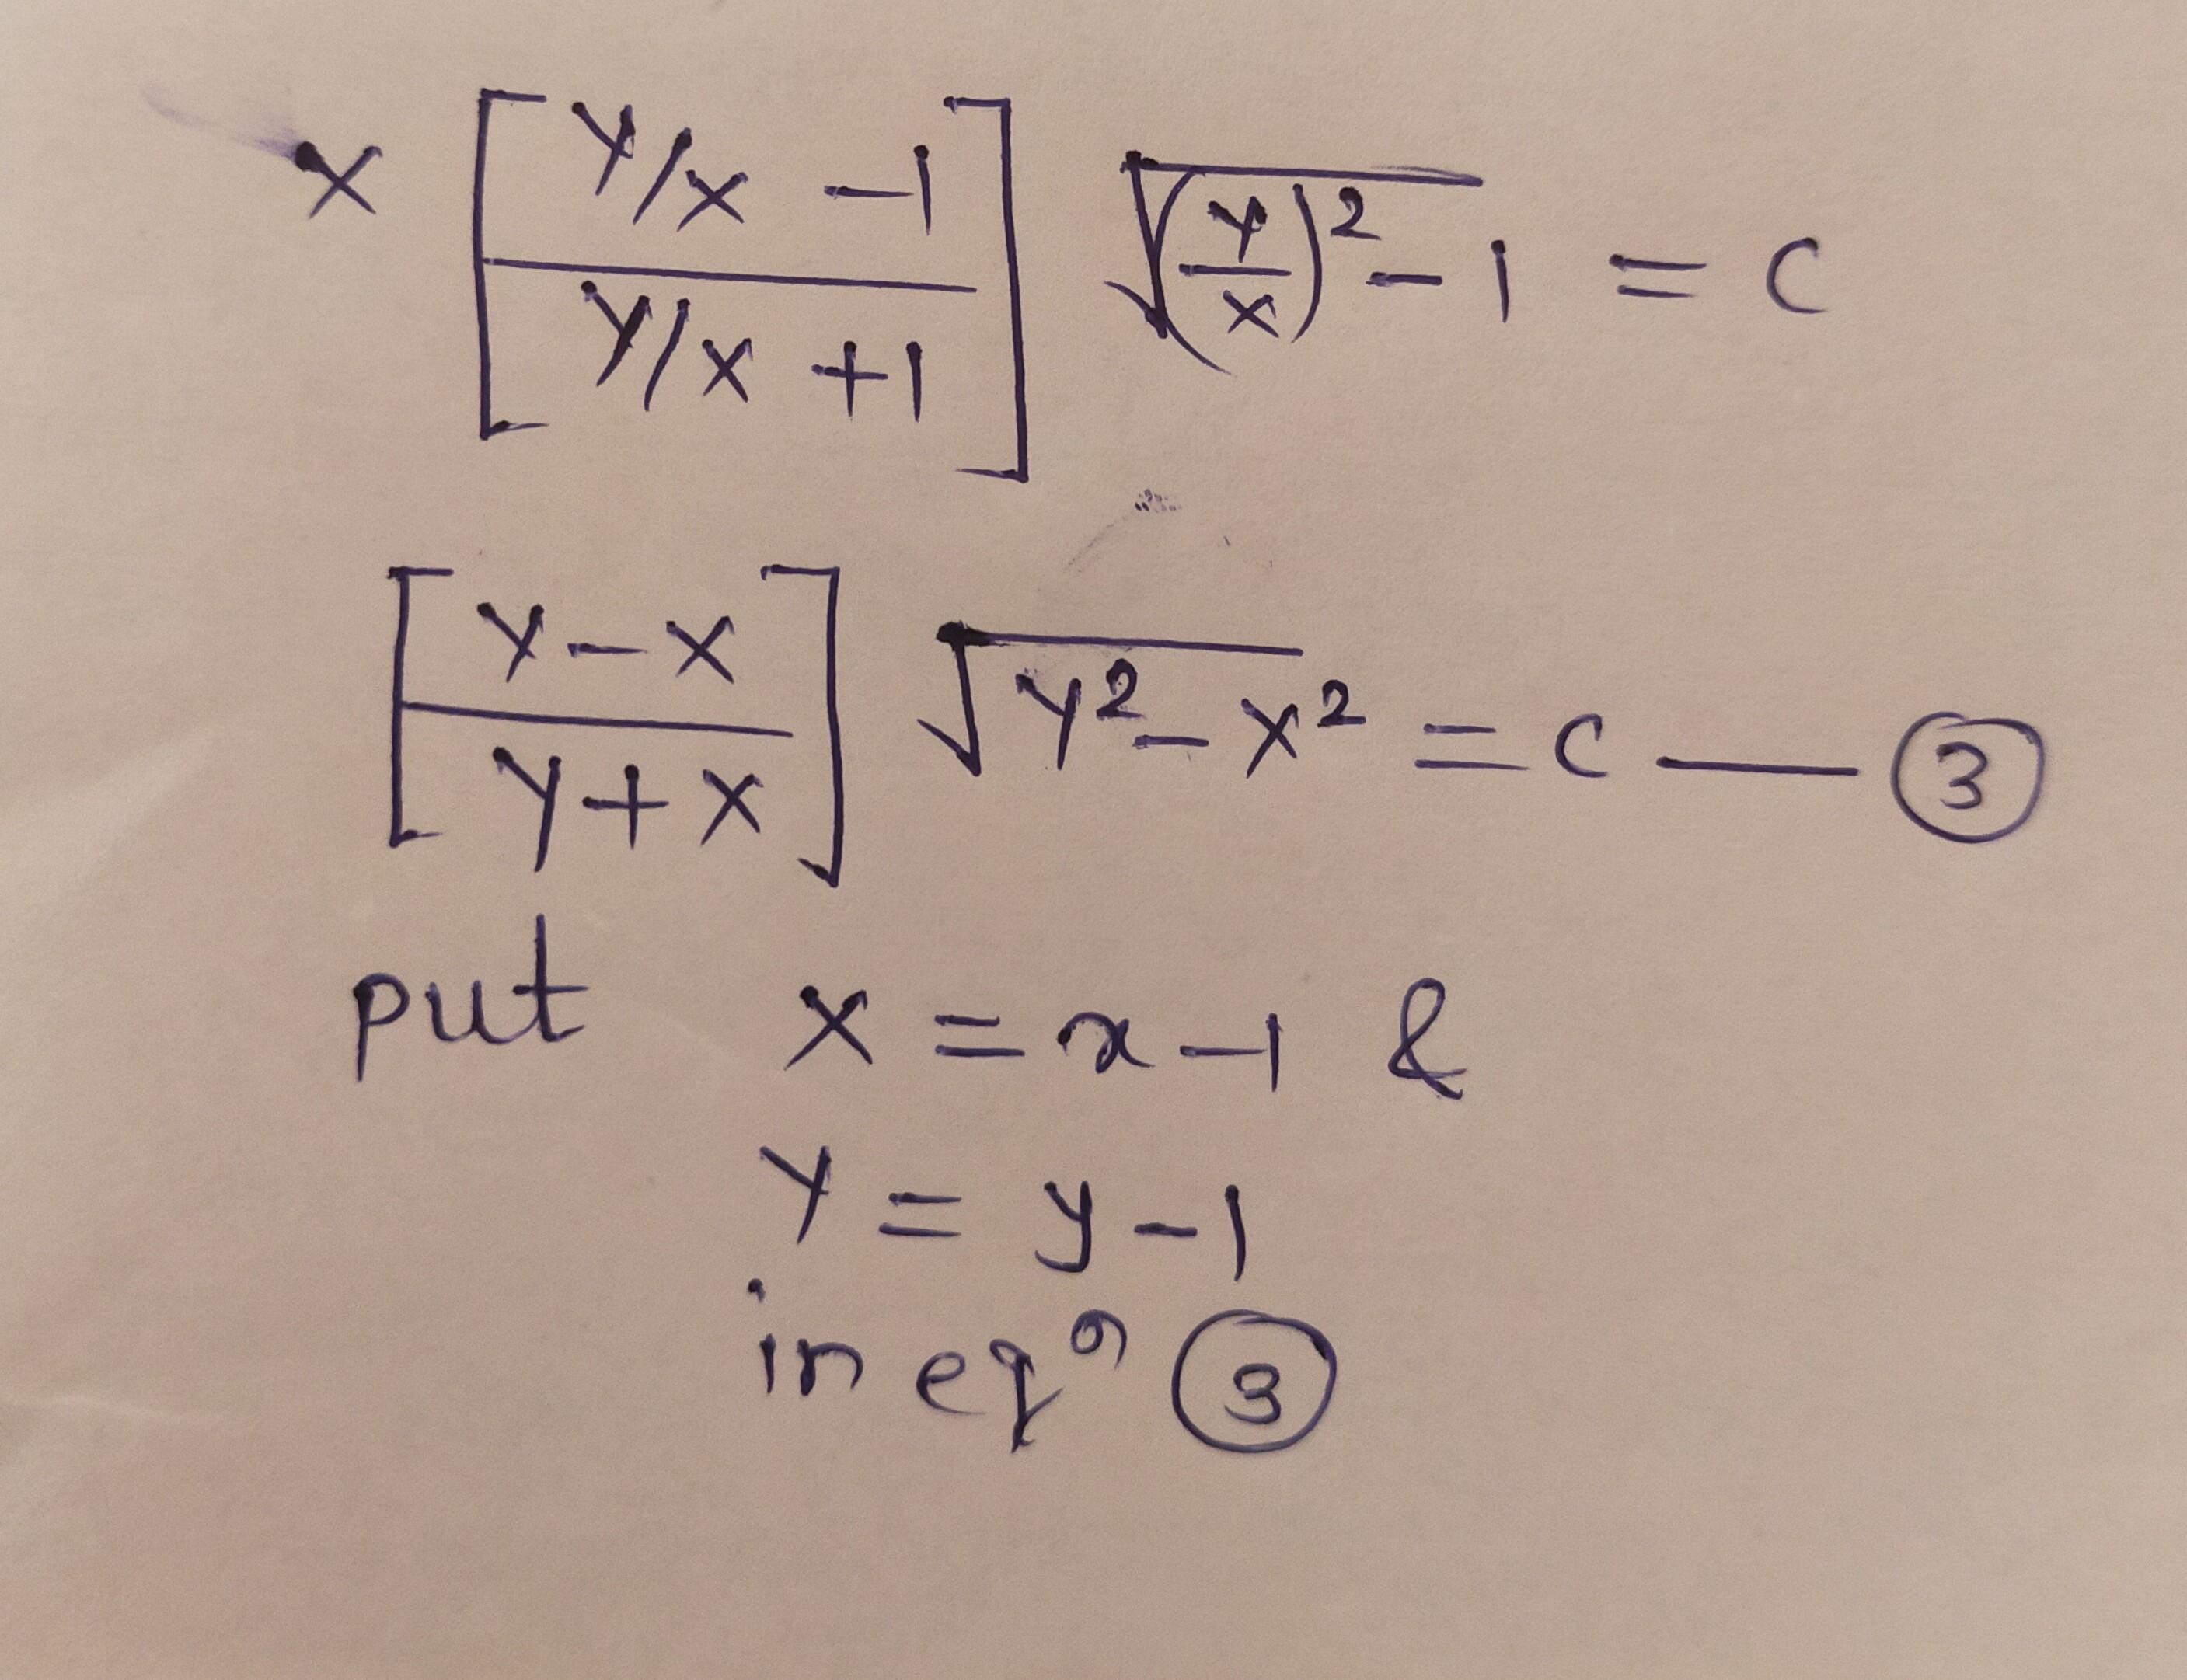 X [ Y/X - 1 / Y/X + 1 ] √(Y/X)² - 1 = C
[ Y - X / Y + X ] √Y² - X² = C — ③
put X = x - 1 &
Y = y - 1
in eqⁿ ③